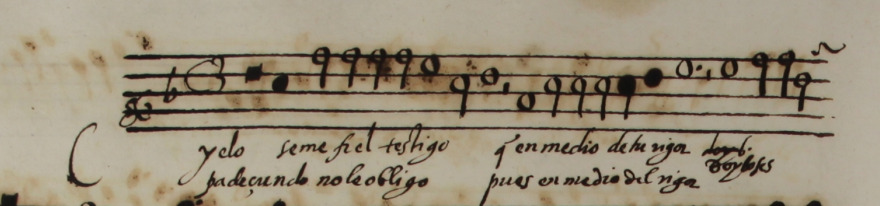 yelo seme fiel testigo q̃ en medio de tu rigor
padeçundo no le obligo pues en medio del rigor